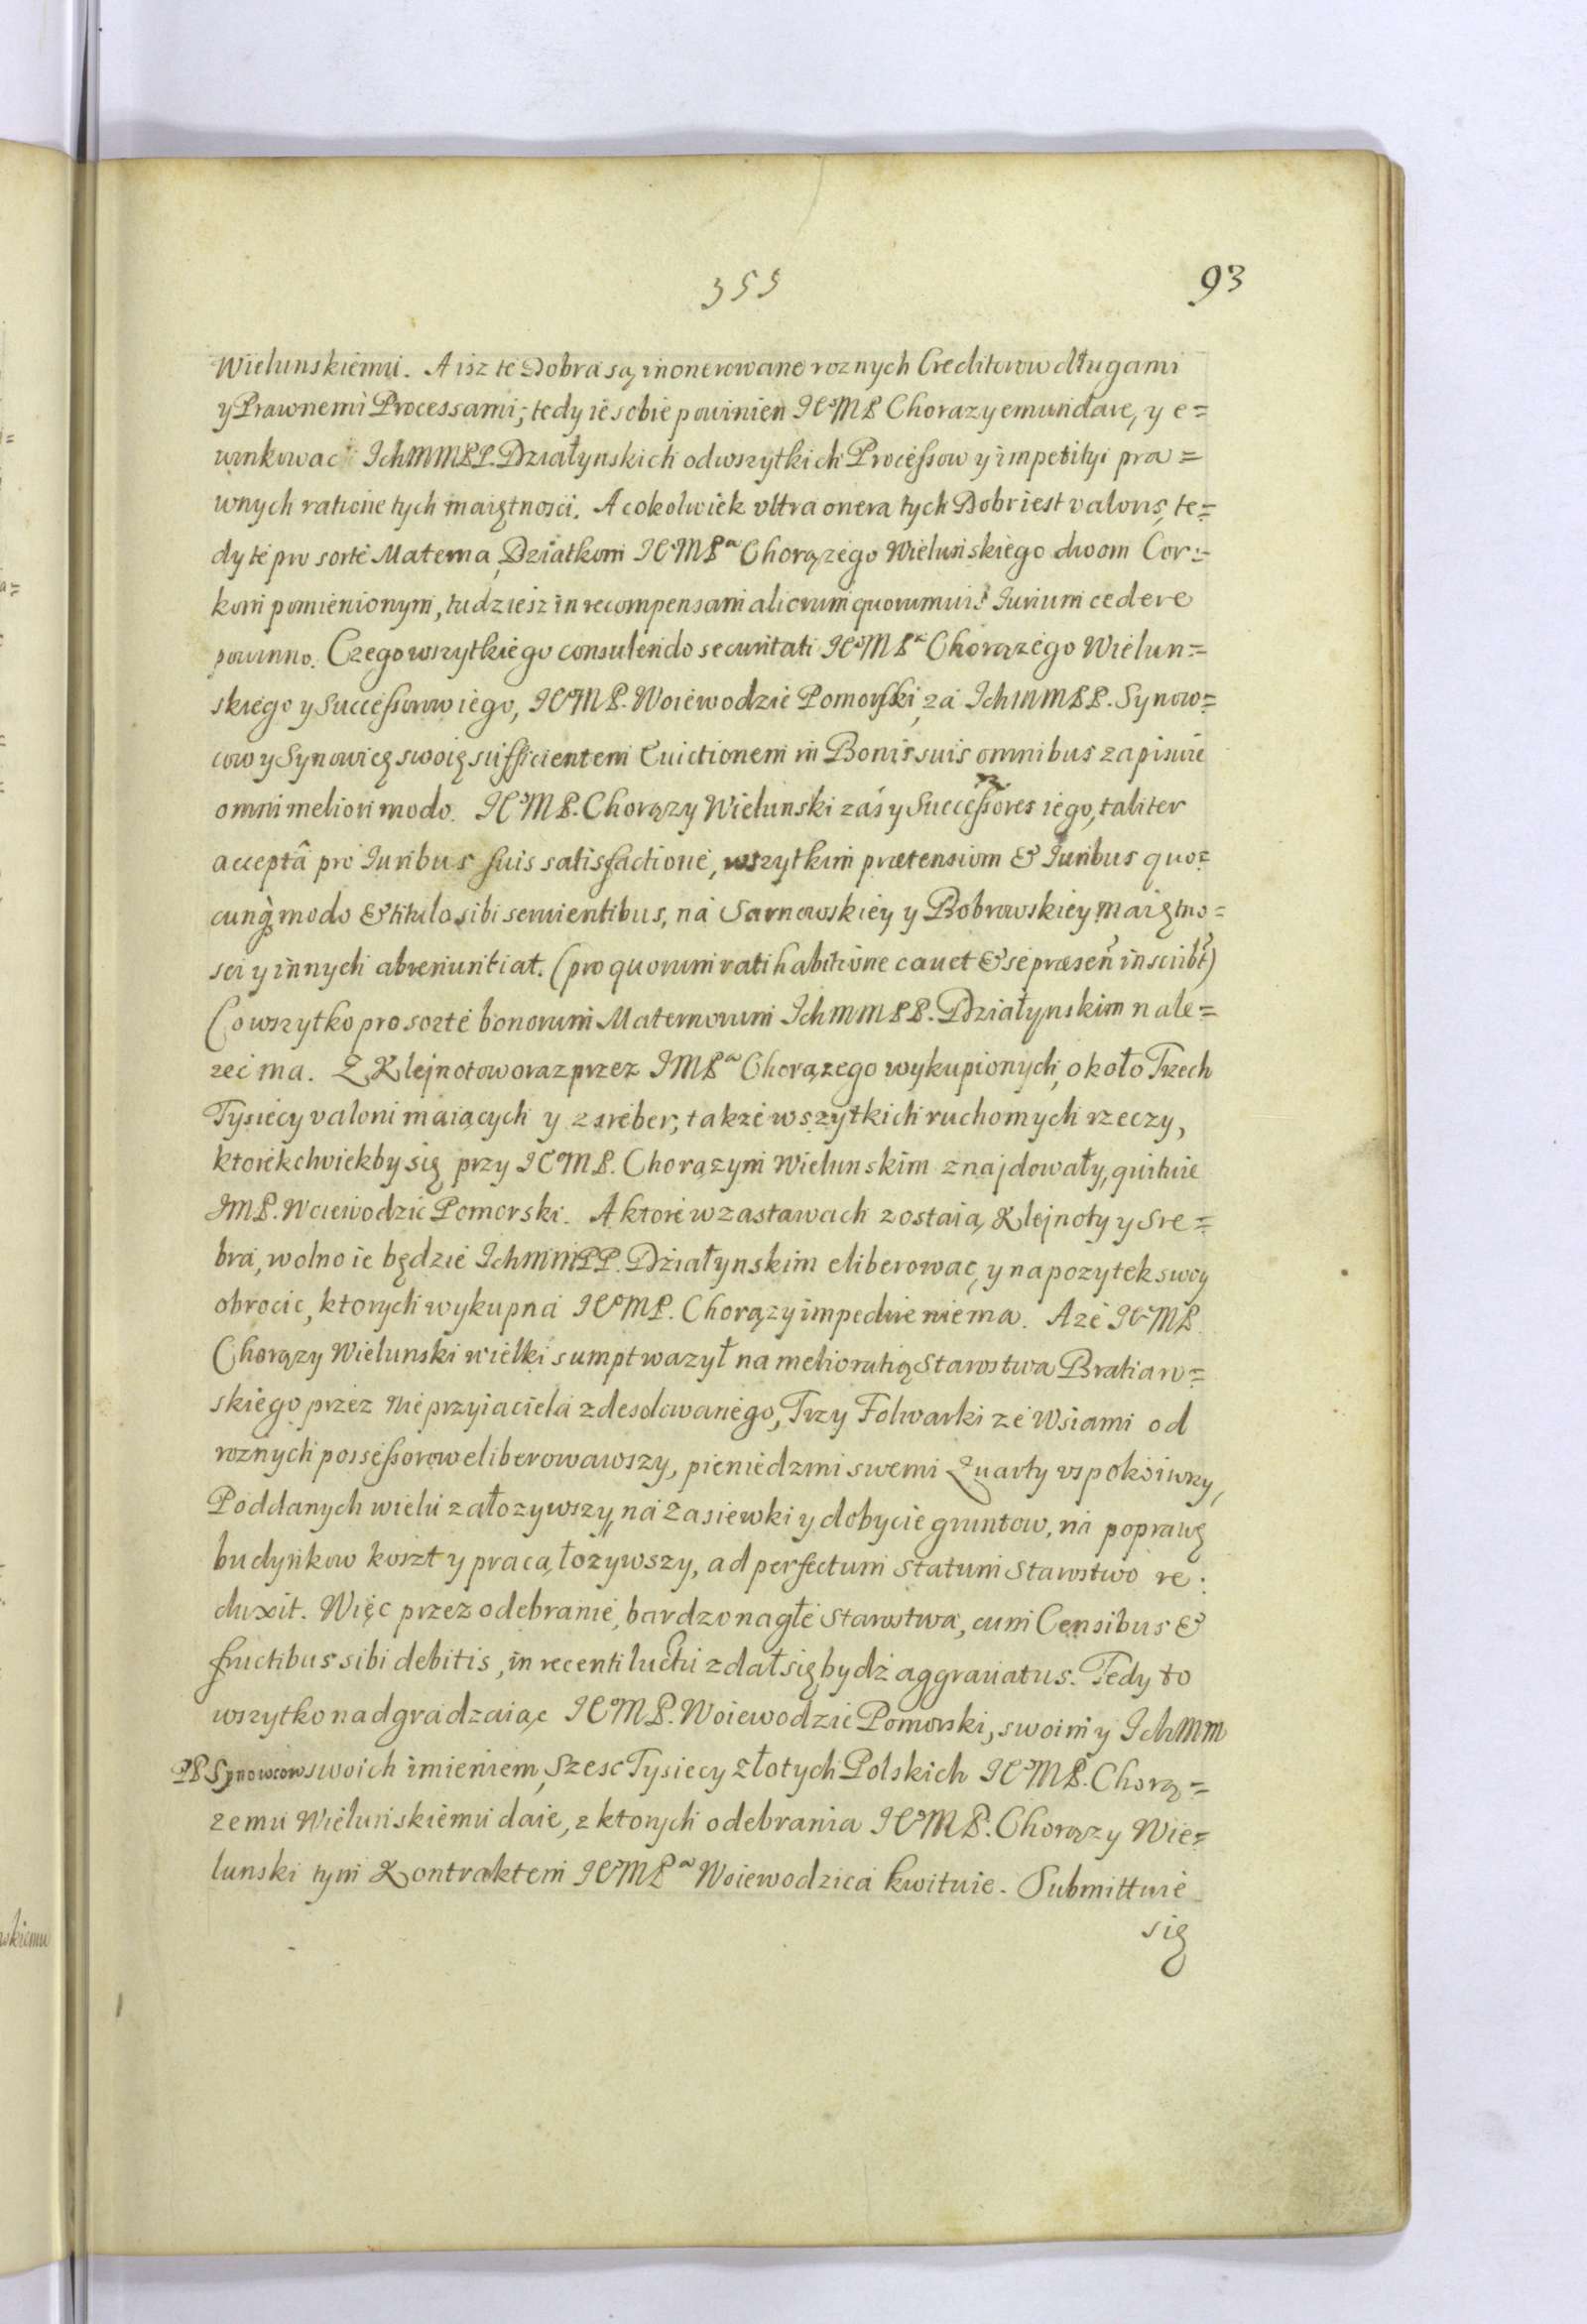 355
93
Wielunskiemu. A isz te Dobra są inonerowane roznych Creditorow długami
y Prawnemi Processami; tedy ie sobie powinien IeºMP Chorazy emundare, y e=
winkowac IchMMPP. Działynskich od wszytkich Processow y impetityi pra=
wnych ratione tych maiętnosci. A cokolwiek vltra onera tych Dobr iest valoris, te=
dy te pro sorte Materna Dziatkom IeºMPª Chorązego Wieluńskiego dwom Cor=
kom pomienionym, tudziesz in recompensam aliorum quorumuis Iurium cedere
powinno. Czego wszytkiego consulendo securitati IeºMPª Chorązego Wielun=
skiego y Successorow iego, IeºMP. Woiewodzic Pomorski, za IchMMPP. Synow=
cow y Synowicę swoię sufficientem Euictionem in Bonis suis omnibus zapisuie
omni meliori modo. IeºMP. Chorązy Wielunski zaś y Successores iego, taliter
acceptâ pro Iuribus suis satisfactione, wszytkim prætensiom & Iuribus quo=
cunq̃ modo & titulo sibi seruientibus, na Sarnowskiey y Bobrowskiey maiętno=
sci y innych abrenuntiat. (pro quorum ratihabitione cauet & se præsen̄ inscribt)
Co wszytko pro sorte bonorum Maternorum IchMMPP. Działynskim nale=
zec ma. Z Klejnotow oraz przez IMPª Chorązego wykupionych, około Trzech
Tysiecy valoni maiących y z sreber, takze wszytkich ruchomych rzeczy,
ktorekolwiekby się przy IeºMP. Chorązym Wielunskim znajdowały, quituie
IMP. Woiewodzic Pomorski. A ktore w zastawach zostaią Klejnoty y Sre=
bra, wolno ie będzie IchMMPP. Działynskim eliberowac, y na pozytek swoy
obrocic, ktorych wykupna IeºMP. Chorązy impedire nie ma. A ze IeºMP.
Chorązy Wielunski wielki sumpt wazył na melioratią Starostwa Bratian=
skiego przez nieprzyiaciela zdesolowanego, Trzy Folwarki ze Wsiami od
roznych possessorow eliberowawszy, pieniedzmi swemi Quarty vspokoiwszy,
Poddanych wielu załozywszy, na zasiewki y dobycie gruntow, na poprawę
budynkow koszt y pracą łozywszy, ad perfectum statum Starostwo re=
duxit. Więc przez odebranie, bardzo nagłe Starostwa, cum Censibus &
fructibus sibi debitis, in recenti luctu zdał się bydz aggrauatus. Tedy to
wszytko nadgradzaiąc IeºMP. Woiewodzic Pomorski, swoim y IchMM
PP Synowcow swoich imieniem, Szesc Tysiecy Złotych Polskich IeºMP. Chorą=
zemu Wieluńskiemu daie, z ktorych odebrania IeºMP. Chorązy Wie=
lunski tym Kontraktem IeºMPª Woiewodzica kwituie. Submittuie
się